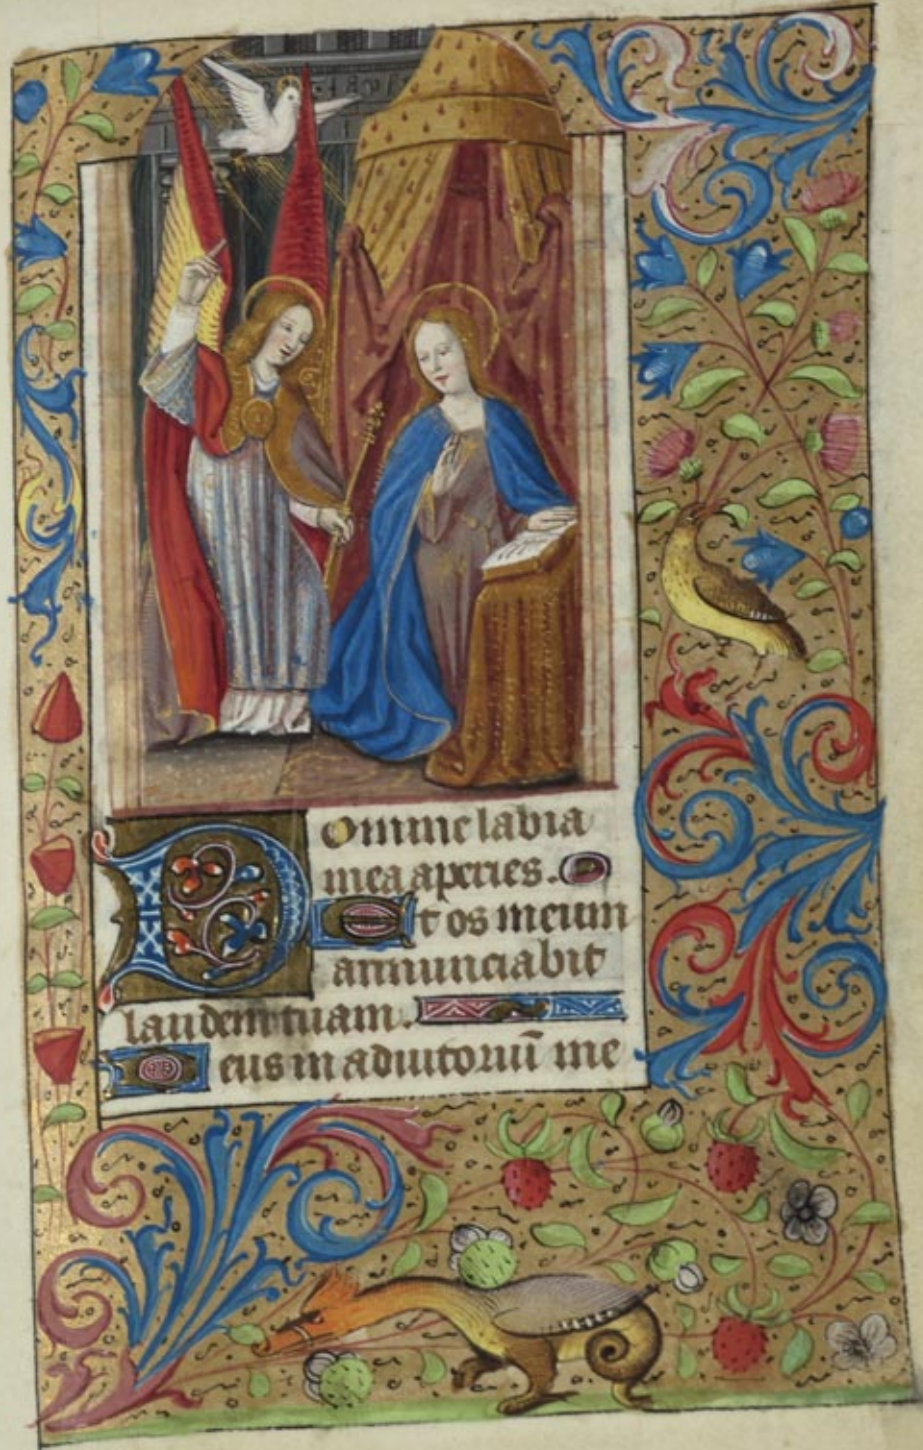 Domine labia
mea aperies.
Et os meum
annunciabit
laudem tuam.
Deus in adiutoriū me